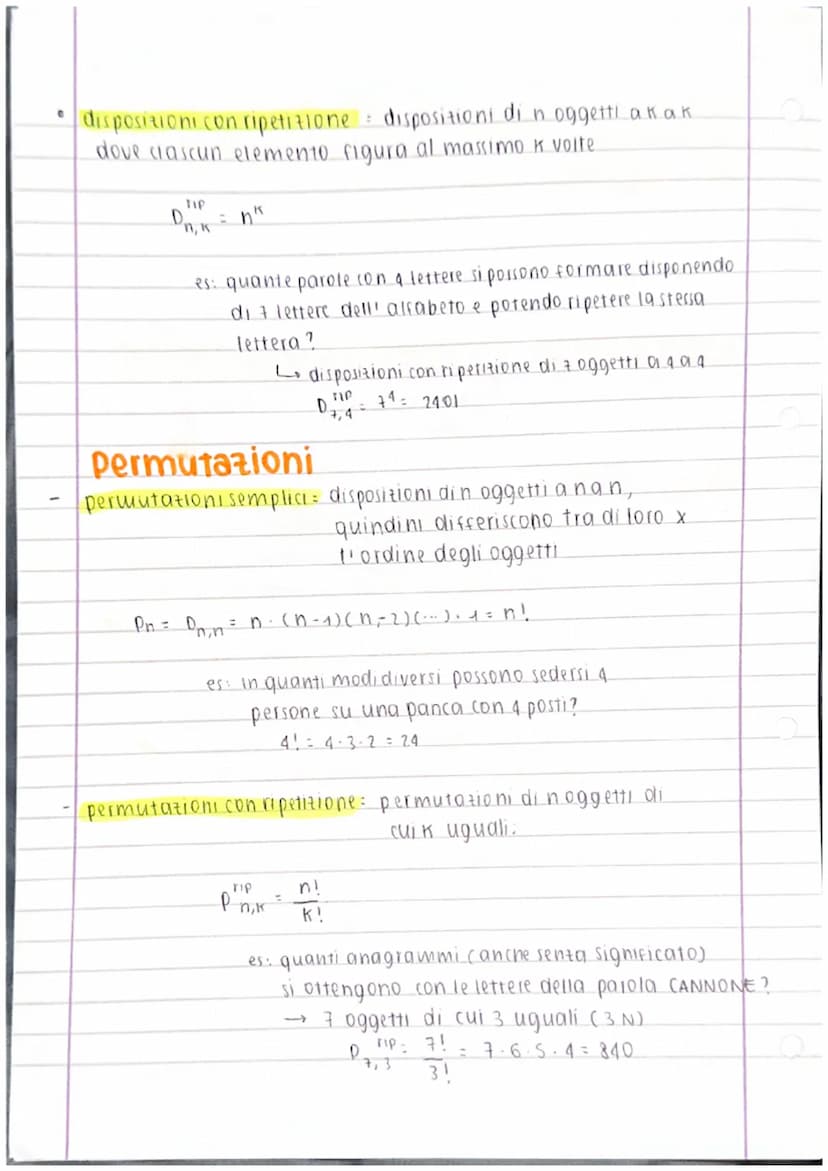 • disposizioni con ripetizione = disposizioni di n oggetti a k a k
dove ciascun elemento figura al massimo k volte
D^rip_n,k = n^k
es: quante parole con 4 lettere si possono formare disponendo
di 7 lettere dell' alfabeto e potendo ripetere la stessa
lettera?
↳ disposizioni con ripetizione di 7 oggetti a 4 a 4
D^rip_7,4 = 7^4 = 2401
Permutazioni
- permutazioni semplici = disposizioni di n oggetti a n a n,
quindi ni differiscono tra di loro x
l'ordine degli oggetti
Pn = D_n,n = n · (n-1)(n-2)(...) · 1 = n!
es: in quanti modi diversi possono sedersi 4
persone su una panca con 4 posti?
4! = 4·3·2 = 24
- permutazioni con ripetizione: permutazioni di n oggetti di
cui k uguali.
P^rip_n,k = n!/k!
es: quanti anagrammi (anche senza significato)
si ottengono con le lettere della parola CANNONE?
→ 7 oggetti di cui 3 uguali (3 N)
P^rip_7,3 = 7!/3! = 7·6·5·4 = 840